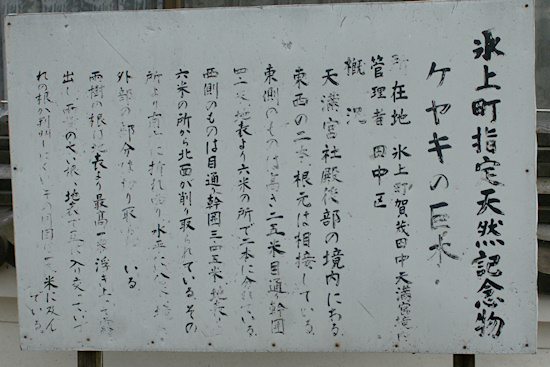 氷上町指定天然記念物
ケヤキの巨木
所在地 氷上町賀茂田中天満宮境内
管理者 田中区
概況
天満宮社殿後部の境内にある
東西の二本根元は相接している。
東側のものは高さ二五米目通り幹囲
四二米地表より六米の所で二本に分れている
西側のものは目通り幹囲三四五米地表
六米の所から北西が削り取られている。その
所より南に折れ曲り水平に
外部の部分は切り取 いる
両樹の根は地表より最高一米浮き上って露
出し 地表
れの根か判明しにくい 米に及ん
でいる。